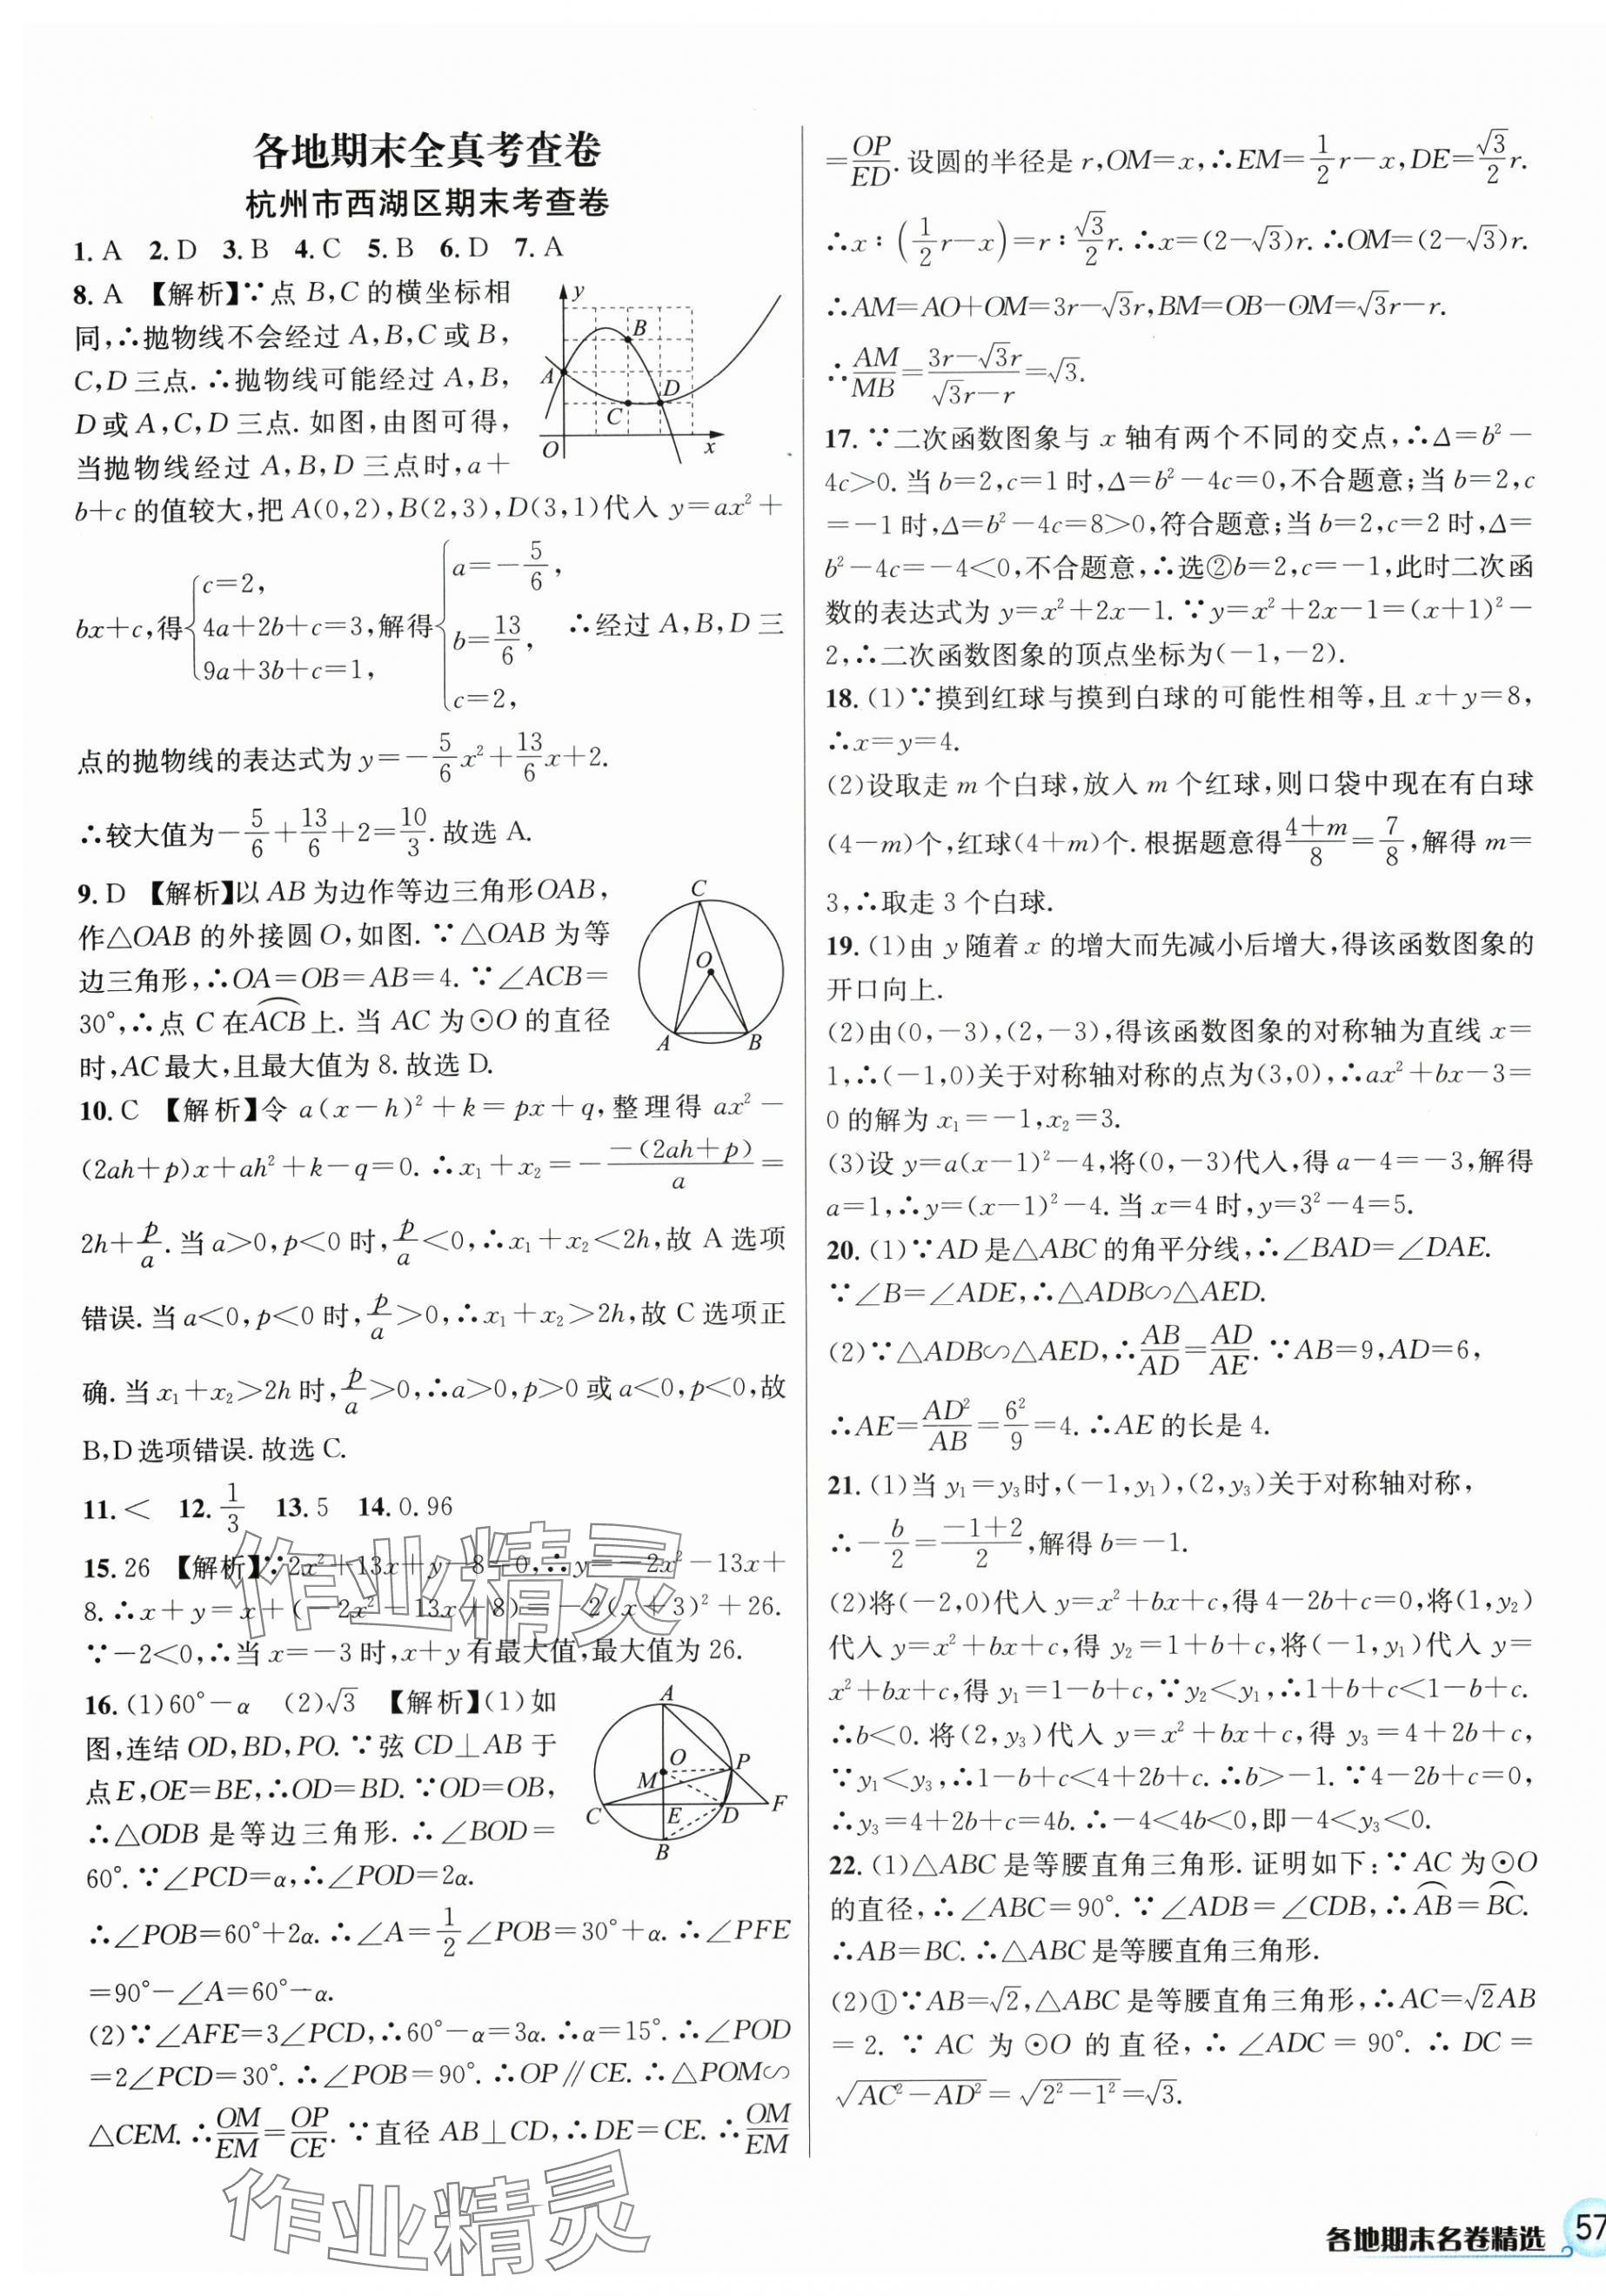 各地期末全真考查卷
杭州市西湖区期末考查卷
1. A 2. D 3. B 4. C 5. B 6. D 7. A
8. A 【解析】∵点 B,C 的横坐标相
同,∴抛物线不会经过 A,B,C 或 B,
C,D 三点. ∴抛物线可能经过 A,B,
D 或 A,C,D 三点. 如图,由图可得,
当抛物线经过 A,B,D 三点时,a+
b+c 的值较大,把 A(0,2),B(2,3),D(3,1)代入 y=ax²+
bx+c,得{c=2, 4a+2b+c=3, 9a+3b+c=1, 解得{a=-5/6, b=13/6, c=2, ∴经过 A,B,D 三
点的抛物线的表达式为 y=-5/6x²+13/6x+2.
∴较大值为-5/6+13/6+2=10/3.故选 A.
y
B
A
D
C
O
x
9. D 【解析】以 AB 为边作等边三角形OAB,
作△OAB 的外接圆 O,如图. ∵△OAB 为等
边三角形,∴OA=OB=AB=4. ∵∠ACB=
30°,∴点 C 在⌒ACB上. 当 AC 为⊙O 的直径
时,AC 最大,且最大值为 8. 故选 D.
C
O
A
B
10. C 【解析】令 a(x-h)²+k=px+q,整理得 ax²-
(2ah+p)x+ah²+k-q=0. ∴x₁+x₂=-−(2ah+p)/a=
2h+p/a. 当 a>0,p<0 时,p/a<0,∴x₁+x₂<2h,故 A 选项
错误. 当 a<0,p<0 时,p/a>0,∴x₁+x₂>2h,故 C 选项正
确. 当 x₁+x₂>2h 时,p/a>0,∴a>0,p>0 或 a<0,p<0,故
B,D 选项错误. 故选 C.
11. < 12. 1/3 13. 5 14. 0.96
15. 26 【解析】∵2x²+13x+y-8=0,∴y=-2x²-13x+
8. ∴x+y=x+(-2x²-13x+8)=-2(x+3)²+26.
∵-2<0,∴当 x=-3 时,x+y 有最大值,最大值为 26.
16. (1)60°-α (2)√3 【解析】(1)如
图,连结 OD,BD,PO. ∵弦 CD⊥AB 于
点 E,OE=BE,∴OD=BD. ∵OD=OB,
∴△ODB 是等边三角形. ∴∠BOD=
60°. ∵∠PCD=α,∴∠POD=2α.
∴∠POB=60°+2α. ∴∠A=1/2∠POB=30°+α. ∴∠PFE
=90°-∠A=60°-α.
(2)∵∠AFE=3∠PCD,∴60°-α=3α. ∴α=15°. ∴∠POD
=2∠PCD=30°. ∴∠POB=90°. ∴OP∥CE. ∴△POM∽
△CEM. ∴OM/EM=OP/CE. ∵直径 AB⊥CD,∴DE=CE. ∴OM/EM
A
O
P
M
C
E
D
F
B
=OP/ED. 设圆的半径是 r,OM=x,∴EM=1/2r-x,DE=√3/2r.
∴x∶(1/2r-x)=r∶√3/2r. ∴x=(2-√3)r. ∴OM=(2-√3)r.
∴AM=AO+OM=3r-√3r,BM=OB-OM=√3r-r.
∴AM/MB=(3r-√3r)/(√3r-r)=√3.
17. ∵二次函数图象与 x 轴有两个不同的交点,∴Δ=b²-
4c>0. 当 b=2,c=1 时,Δ=b²-4c=0,不合题意;当 b=2,c
=-1 时,Δ=b²-4c=8>0,符合题意;当 b=2,c=2 时,Δ=
b²-4c=-4<0,不合题意,∴选②b=2,c=-1,此时二次函
数的表达式为 y=x²+2x-1. ∵y=x²+2x-1=(x+1)²-
2,∴二次函数图象的顶点坐标为(-1,-2).
18. (1)∵摸到红球与摸到白球的可能性相等,且 x+y=8,
∴x=y=4.
(2)设取走 m 个白球,放入 m 个红球,则口袋中现在有白球
(4-m)个,红球(4+m)个. 根据题意得(4+m)/8=7/8,解得 m=
3,∴取走 3 个白球.
19. (1)由 y 随着 x 的增大而先减小后增大,得该函数图象的
开口向上.
(2)由(0,-3),(2,-3),得该函数图象的对称轴为直线 x=
1,∴(-1,0)关于对称轴对称的点为(3,0),∴ax²+bx-3=
0 的解为 x₁=-1,x₂=3.
(3)设 y=a(x-1)²-4,将(0,-3)代入,得 a-4=-3,解得
a=1,∴y=(x-1)²-4. 当 x=4 时,y=3²-4=5.
20. (1)∵AD 是△ABC 的角平分线,∴∠BAD=∠DAE.
∵∠B=∠ADE,∴△ADB∽△AED.
(2)∵△ADB∽△AED,∴AB/AD=AD/AE. ∵AB=9,AD=6,
∴AE=AD²/AB=6²/9=4. ∴AE 的长是 4.
21. (1)当 y₁=y₃时,(-1,y₁),(2,y₃)关于对称轴对称,
∴-b/2=(-1+2)/2,解得 b=-1.
(2)将(-2,0)代入 y=x²+bx+c,得 4-2b+c=0,将(1,y₂)
代入 y=x²+bx+c,得 y₂=1+b+c,将(-1,y₁)代入 y=
x²+bx+c,得 y₁=1-b+c,∵y₂<y₁,∴1+b+c<1-b+c.
∴b<0. 将(2,y₃)代入 y=x²+bx+c,得 y₃=4+2b+c,
∵y₁<y₃,∴1-b+c<4+2b+c. ∴b>-1. ∵4-2b+c=0,
∴y₃=4+2b+c=4b. ∴-4<4b<0,即-4<y₃<0.
22. (1)△ABC 是等腰直角三角形. 证明如下:∵AC 为⊙O
的直径,∴∠ABC=90°. ∵∠ADB=∠CDB,∴⌒AB=⌒BC.
∴AB=BC. ∴△ABC 是等腰直角三角形.
(2)①∵AB=√2,△ABC 是等腰直角三角形,∴AC=√2AB
=2. ∵AC 为⊙O 的直径,∴∠ADC=90°. ∴DC=
√(AC²-AD²)=√(2²-1²)=√3.
作业精灵
作业精灵
各地期末名卷精选 57